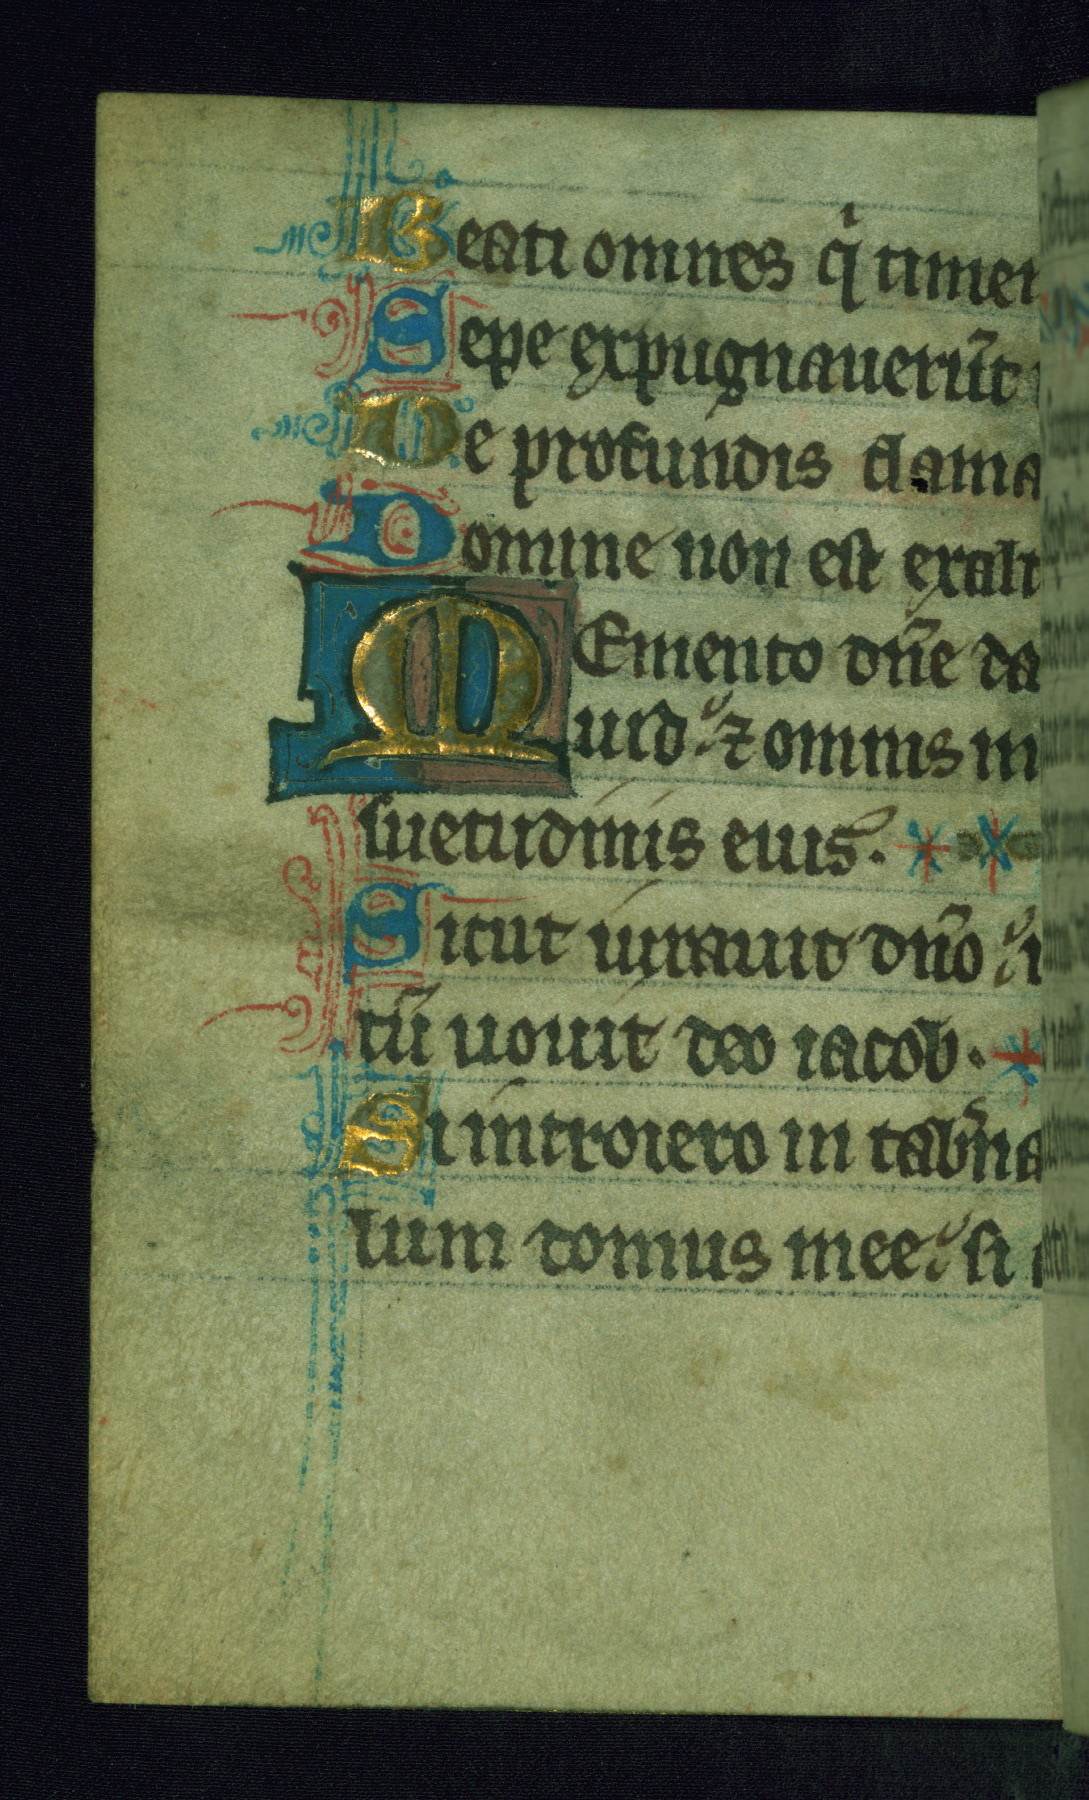 Beati omnes q̇ timen
Sepe expugnauerūt
De profundis clama
Domine non est exalt
MEmento dn̄e da
uid ⁊ omnis m
suetudinis eius.
Sicut iurauit dn̄o
tū uouit deo iacob.
Si introiero in tab̄na
lum domus mee si